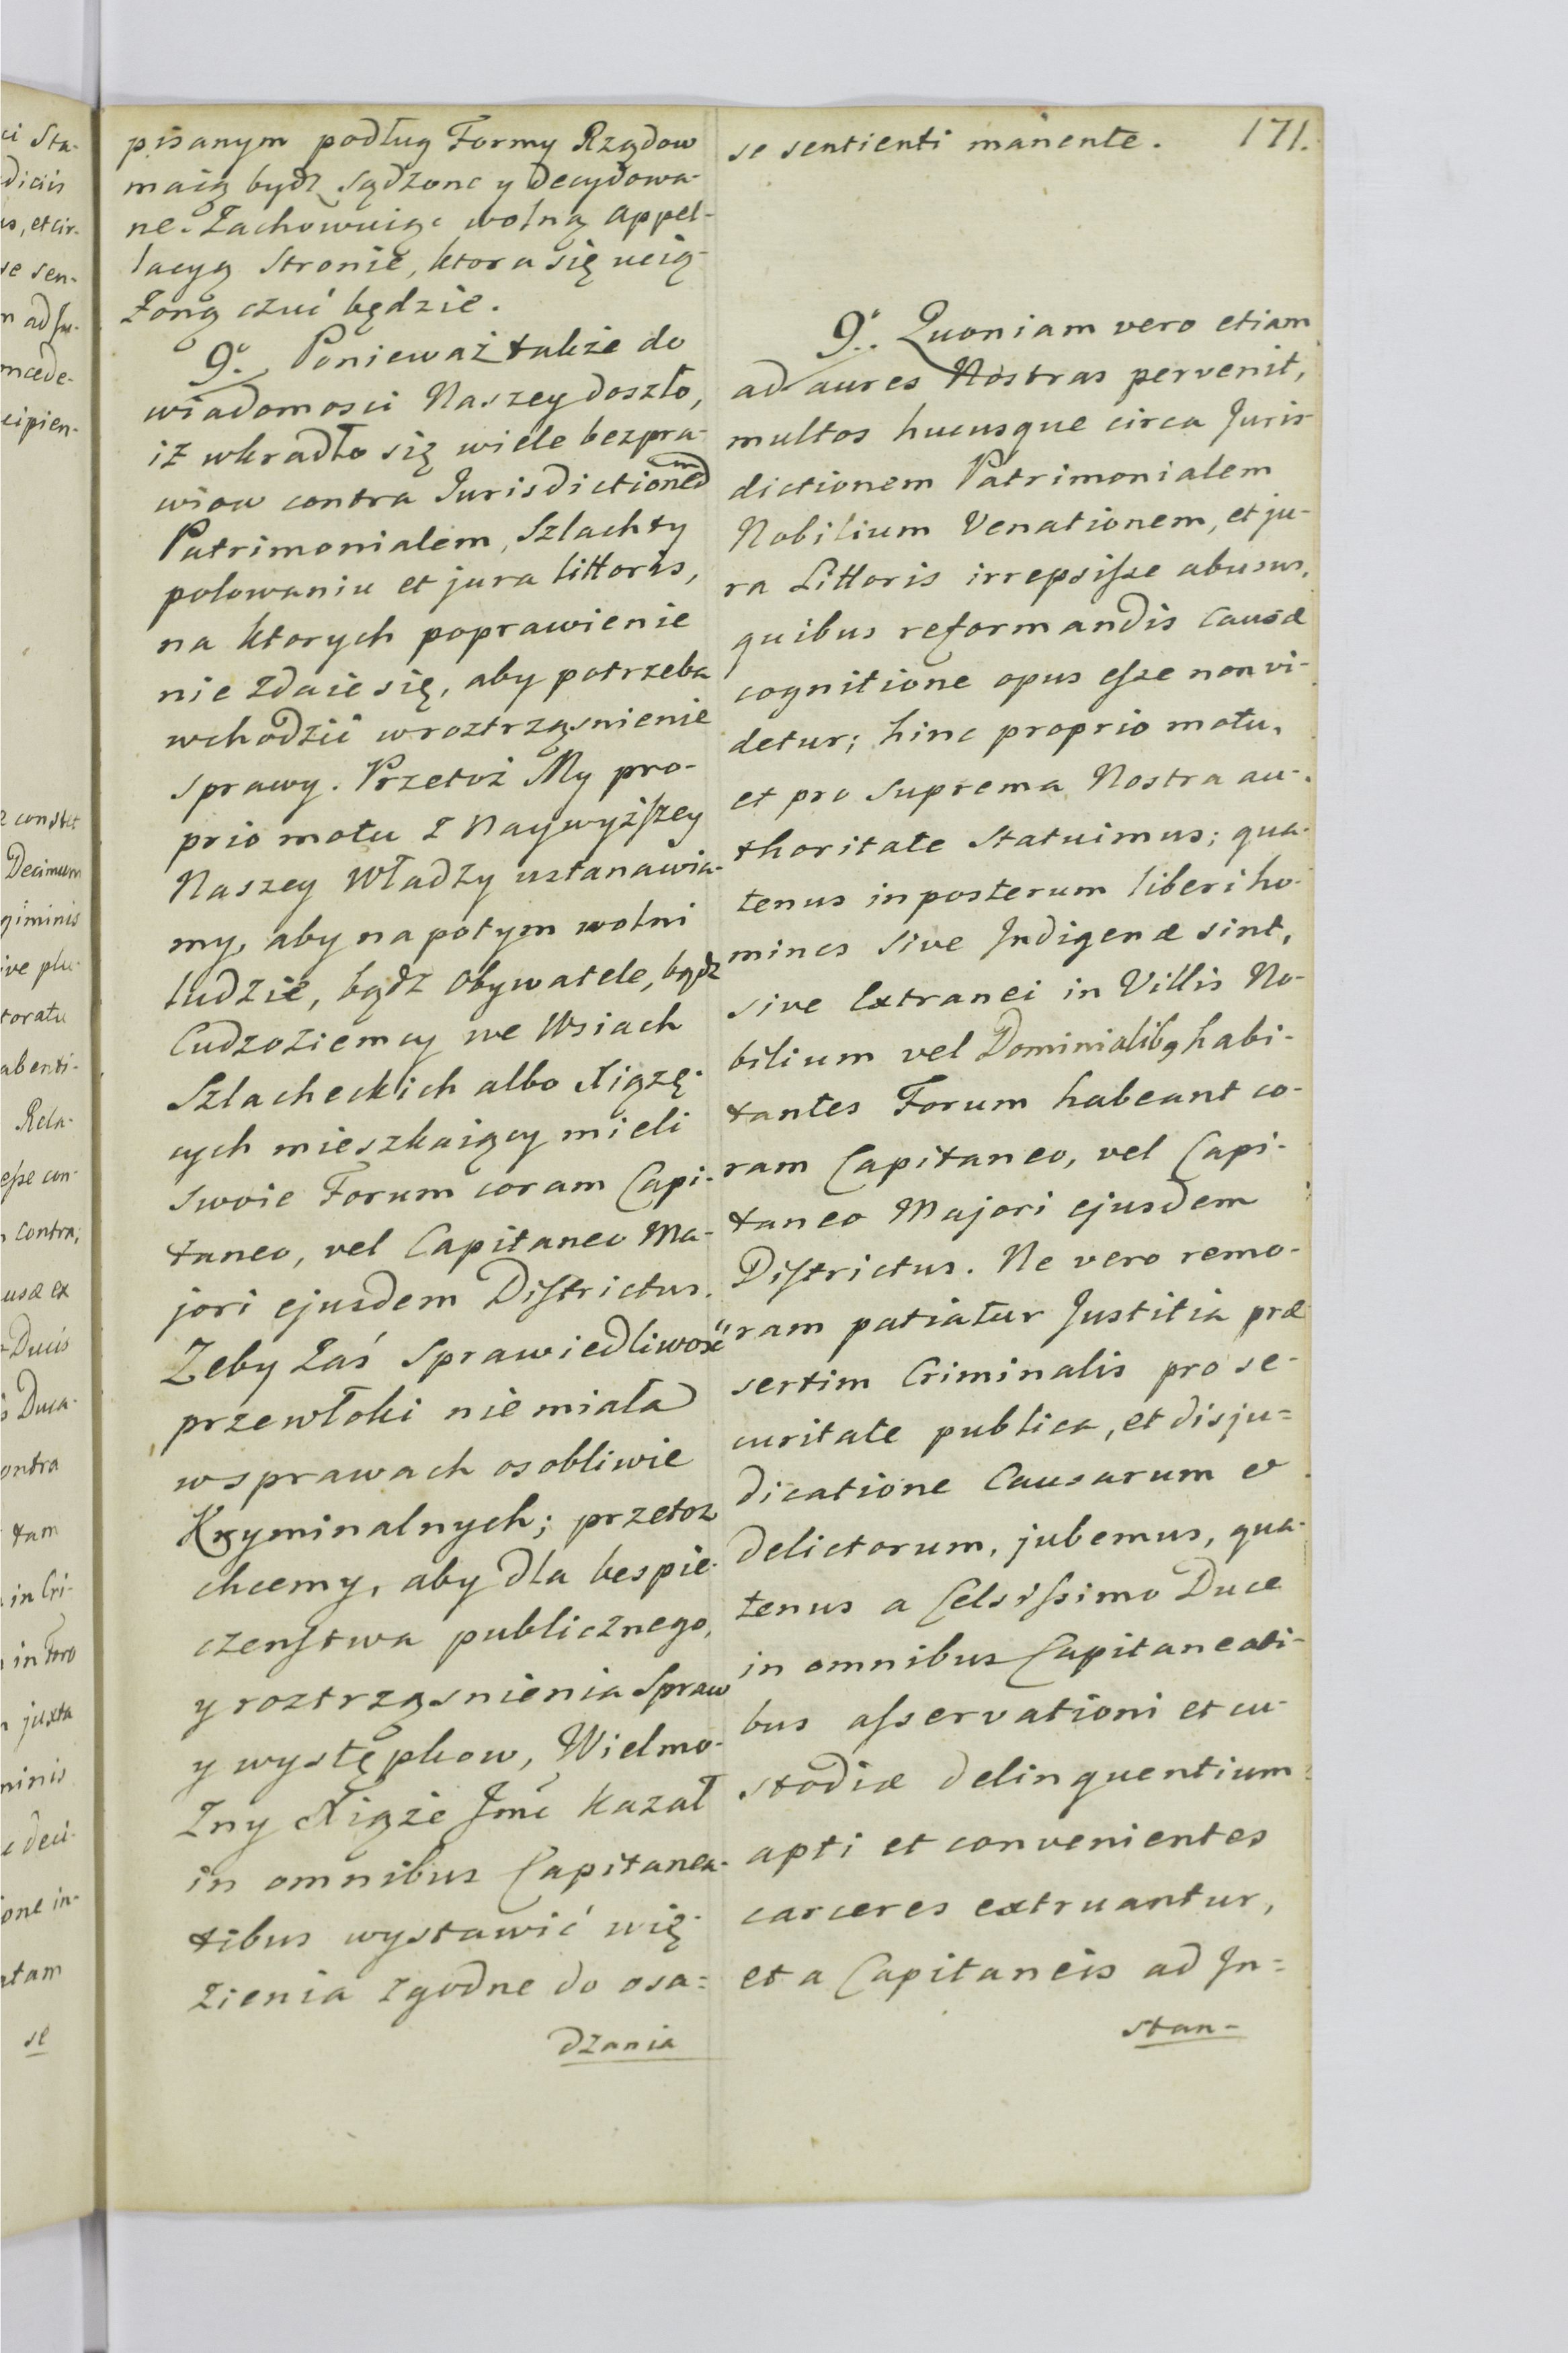 pisanym podług Formy Rządow
maią bydź sądzone y decydowa-
ne. Zachowuiąc wolną appel-
lacyą Stronie, ktora się ucią-
żoną czuć będzie.
9o. Ponieważ także do
wiadomosci Naszey doszło,
iż wkradło się wiele bezpra-
wiow contra Jurisdictionem
Patrimonialem, Szlachty
polowaniu et jura littoris,
na ktorych poprawienie
nie zdaie się, aby potrzeba
wchodzić w roztrząsnienie
sprawy. Przetoż My pro-
prio motu z Naywyższey
Naszey Władzy ustanawia-
my, aby na potym wolni
ludzie, bądź Obywatele, bądz
Cudzoziemcy we Wsiach
Szlacheckich albo Xiążę-
cych mieszkaiący mieli
swoie Forum coram Capi-
taneo, vel Capitaneo Ma-
jori ejusdem Districtus.
Zeby zaś Sprawiedliwość
przewłoki nie miała
w sprawach osobliwie
Kryminalnych; przetoz
chcemy, aby dla bespie-
czenstwa publicznego,
y roztrząsnienia Spraw
y występkow, Wielmo-
żny Xiąże Jmć kazał
in omnibus Capitanea-
tibus wystawić wię-
zienia zgodne do osa=
dzania
171.
se sentienti manente.
9o. Quoniam vero etiam
ad aures Nostras pervenit,
multos hucusque circa Juris
dictionem Patrimonialem
Nobilium Venationem, et ju-
ra Littoris irrepsisse abusus,
quibus reformandis causæ
cognitione opus esse non vi-
detur; hinc proprio motu,
et pro suprema Nostra au-
thoritate statuimus; qua-
tenus in posterum liberi ho-
mines sive Indigenæ sint,
sive Extranei in Villis No-
bilium vel Dominialibq habi-
tantes Forum habeant co-
ram Capitaneo, vel Capi-
taneo Majori ejusdem
Districtus. Ne vero remo-
ram patiatur Justitia præ
sertim Criminalis pro se-
curitate publica, et disju=
dicatione Causarum et
delictorum, jubemus, qua-
tenus a Celsissimo Duce
in omnibus Capitaneati-
bus asservationi et cu-
stodiæ delinquentium
apti et convenientes
carceres extruantur,
et a Capitaneis ad In=
stan-